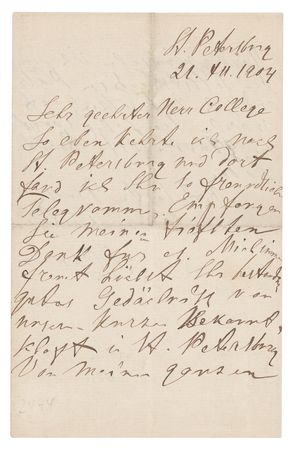 St. Petersburg
21. XII. 1904
Sehr geehrter Herr College
So eben kehrte ich nach
St. Petersburg und dort
fand ich Ihr so freundliches
Telegramm. Empfangen
Sie meinen
Dank für es. Mich
freut Ihr
gutes Gedächtniss von
unserer kurzen Bekannt
schaft in St. Petersburg
Von meinem ganzen